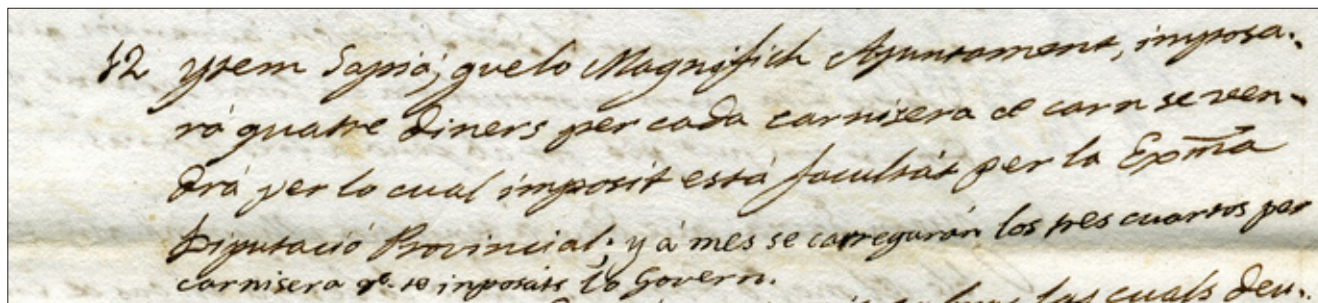 12 ytem Sapiá, que lo Magnifich Ajuntament, imposa..
rá quatre diners per cada carnisera de carn se ven-
drá per lo cual imposit está facultát per la Exma
Diputació Provincial; y á mes se carregarán los tres cuartos per
carnisera qe. te inposats lo Govern.
las cuals deu..